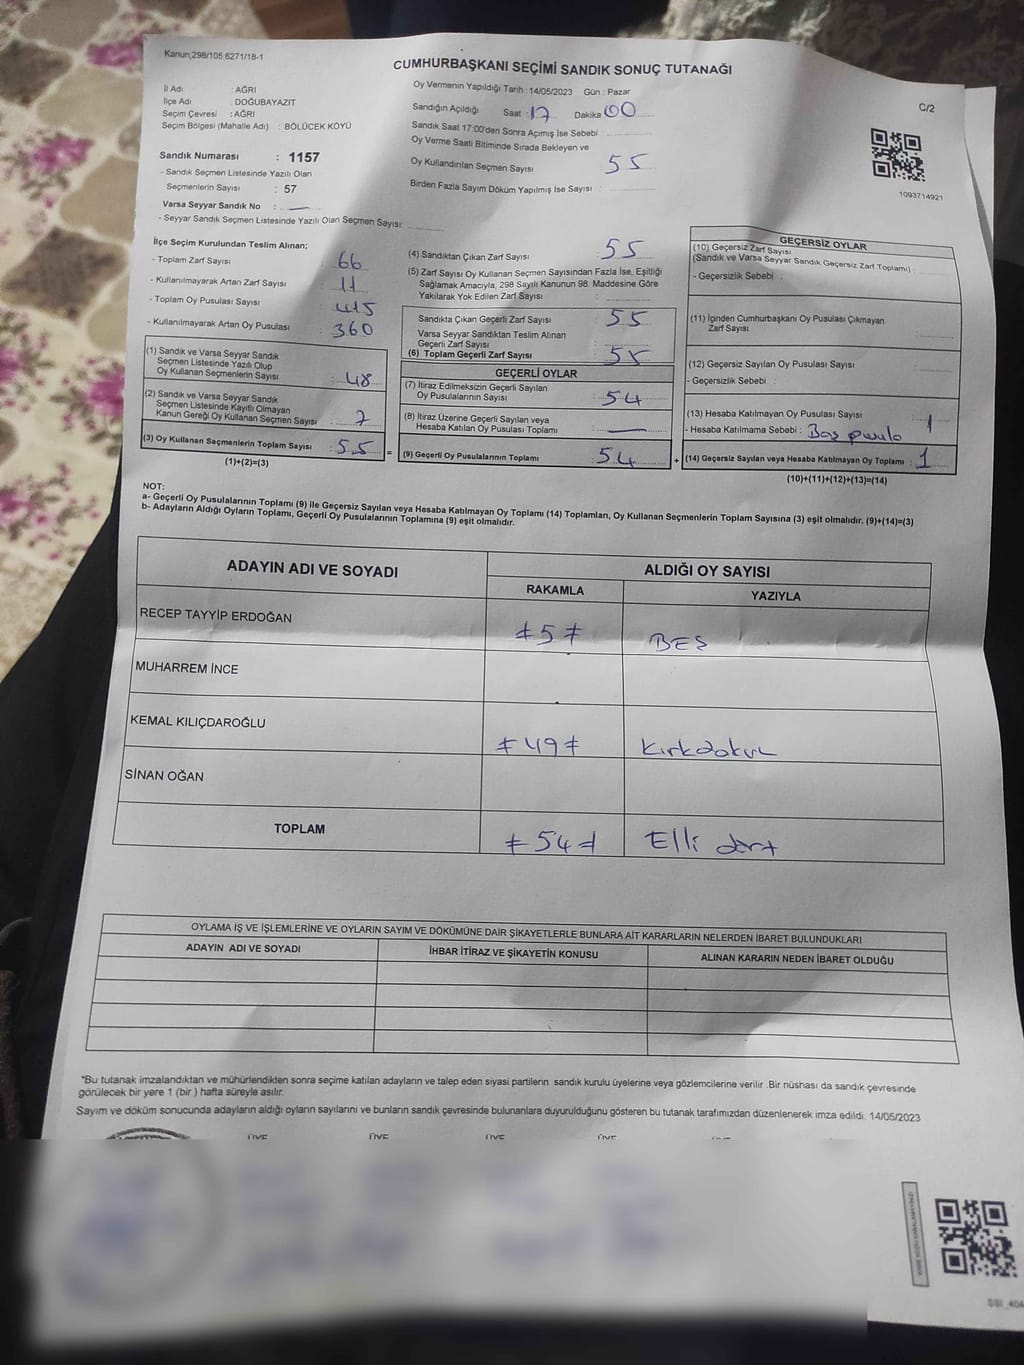 Kanun;298/105,6271/18-1
CUMHURBAŞKANI SEÇİMİ SANDIK SONUÇ TUTANAĞI
C/2
İl Adı : AĞRI
İlçe Adı : DOĞUBAYAZIT
Seçim Çevresi : AĞRI
Seçim Bölgesi (Mahalle Adı) : BÖLÜCEK KÖYÜ
Sandık Numarası : 1157
- Sandık Seçmen Listesinde Yazılı Olan
Seçmenlerin Sayısı : 57
Varsa Seyyar Sandık No : —
- Seyyar Sandık Seçmen Listesinde Yazılı Olan Seçmen Sayısı:
Oy Vermenin Yapıldığı Tarih : 14/05/2023 Gün : Pazar
Sandığın Açıldığı Saat : 17 Dakika 00
Sandık Saat 17:00'den Sonra Açımış İse Sebebi :
Oy Verme Saati Bitiminde Sırada Bekleyen ve
Oy Kullandırılan Seçmen Sayısı : 55
Birden Fazla Sayım Döküm Yapılmış İse Sayısı :
1093714921
İlçe Seçim Kurulundan Teslim Alınan;
- Toplam Zarf Sayısı : 66
- Kullanılmayarak Artan Zarf Sayısı : 11
- Toplam Oy Pusulası Sayısı : 415
- Kullanılmayarak Artan Oy Pusulası : 360
(1) Sandık ve Varsa Seyyar Sandık
Seçmen Listesinde Yazılı Olup
Oy Kullanan Seçmenlerin Sayısı : 48
(2) Sandık ve Varsa Seyyar Sandık
Seçmen Listesinde Kayıtlı Olmayan
Kanun Gereği Oy Kullanan Seçmen Sayısı : 7
(3) Oy Kullanan Seçmenlerin Toplam Sayısı : 55 =
(1)+(2)=(3)
(4) Sandıktan Çıkan Zarf Sayısı : 55
(5) Zarf Sayısı Oy Kullanan Seçmen Sayısından Fazla İse, Eşitliği
Sağlamak Amacıyla, 298 Sayılı Kanunun 98. Maddesine Göre
Yakılarak Yok Edilen Zarf Sayısı :
Sandıkta Çıkan Geçerli Zarf Sayısı : 55
Varsa Seyyar Sandıktan Teslim Alınan
Geçerli Zarf Sayısı :
(6) Toplam Geçerli Zarf Sayısı : 55
GEÇERLİ OYLAR
(7) İtiraz Edilmeksizin Geçerli Sayılan
Oy Pusulalarının Sayısı : 54
(8) İtiraz Üzerine Geçerli Sayılan veya
Hesaba Katılan Oy Pusulası Toplamı : —
(9) Geçerli Oy Pusulalarının Toplamı : 54 +
GEÇERSİZ OYLAR
(10) Geçersiz Zarf Sayısı
(Sandık ve Varsa Seyyar Sandık Geçersiz Zarf Toplamı) :
- Geçersizlik Sebebi :
(11) İçinden Cumhurbaşkanı Oy Pusulası Çıkmayan
Zarf Sayısı :
(12) Geçersiz Sayılan Oy Pusulası Sayısı :
- Geçersizlik Sebebi :
(13) Hesaba Katılmayan Oy Pusulası Sayısı : 1
- Hesaba Katılmama Sebebi : Boş pusula
(14) Geçersiz Sayılan veya Hesaba Katılmayan Oy Toplamı : 1
(10)+(11)+(12)+(13)=(14)
NOT:
a- Geçerli Oy Pusulalarının Toplamı (9) ile Geçersiz Sayılan veya Hesaba Katılmayan Oy Toplamı (14) Toplamları, Oy Kullanan Seçmenlerin Toplam Sayısına (3) eşit olmalıdır. (9)+(14)=(3)
b- Adayların Aldığı Oyların Toplamı, Geçerli Oy Pusulalarının Toplamına (9) eşit olmalıdır.
ADAYIN ADI VE SOYADI
ALDIĞI OY SAYISI
RAKAMLA YAZIYLA
RECEP TAYYİP ERDOĞAN ≠5≠ BEŞ
MUHARREM İNCE
KEMAL KILIÇDAROĞLU ≠49≠ Kırkdokuz
SİNAN OĞAN
TOPLAM ≠54≠ Elli dört
OYLAMA İŞ VE İŞLEMLERİNE VE OYLARIN SAYIM VE DÖKÜMÜNE DAİR ŞİKAYETLERLE BUNLARA AİT KARARLARIN NELERDEN İBARET BULUNDUKLARI
ADAYIN ADI VE SOYADI İHBAR İTİRAZ VE ŞİKAYETİN KONUSU ALINAN KARARIN NEDEN İBARET OLDUĞU
*Bu tutanak imzalandıktan ve mühürlendikten sonra seçime katılan adayların ve talep eden siyasi partilerin sandık kurulu üyelerine veya gözlemcilerine verilir .Bir nüshası da sandık çevresinde
görülecek bir yere 1 (bir ) hafta süreyle asılır.
Sayım ve döküm sonucunda adayların aldığı oyların sayılarını ve bunların sandık çevresinde bulunanlara duyurulduğunu gösteren bu tutanak tarafımızdan düzenlenerek imza edildi. 14/05/2023
ÜYE ÜYE ÜYE ÜYE